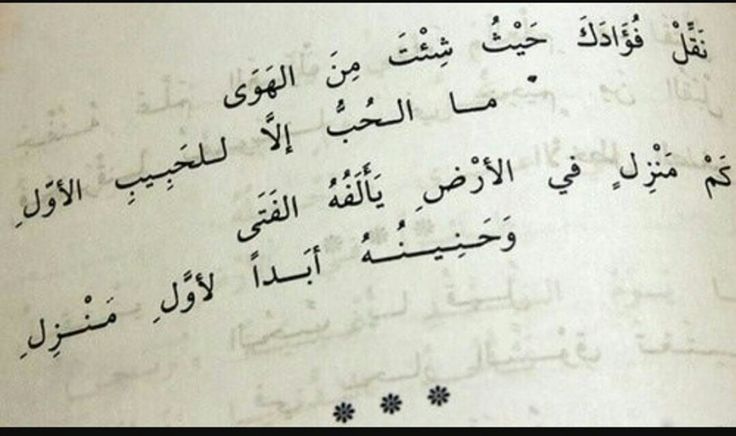 نَقِّلْ فُؤَادَكَ حَيْثُ شِئْتَ مِنَ الهَوَى
ما الحُبُّ إلَّا للحَبِيبِ الأوّلِ
كَمْ مَنْزِلٍ في الأرْضِ يَأْلَفُهُ الفَتَى
وَحَنِينُهُ أبَداً لأوَّلِ مَنْزِلِ